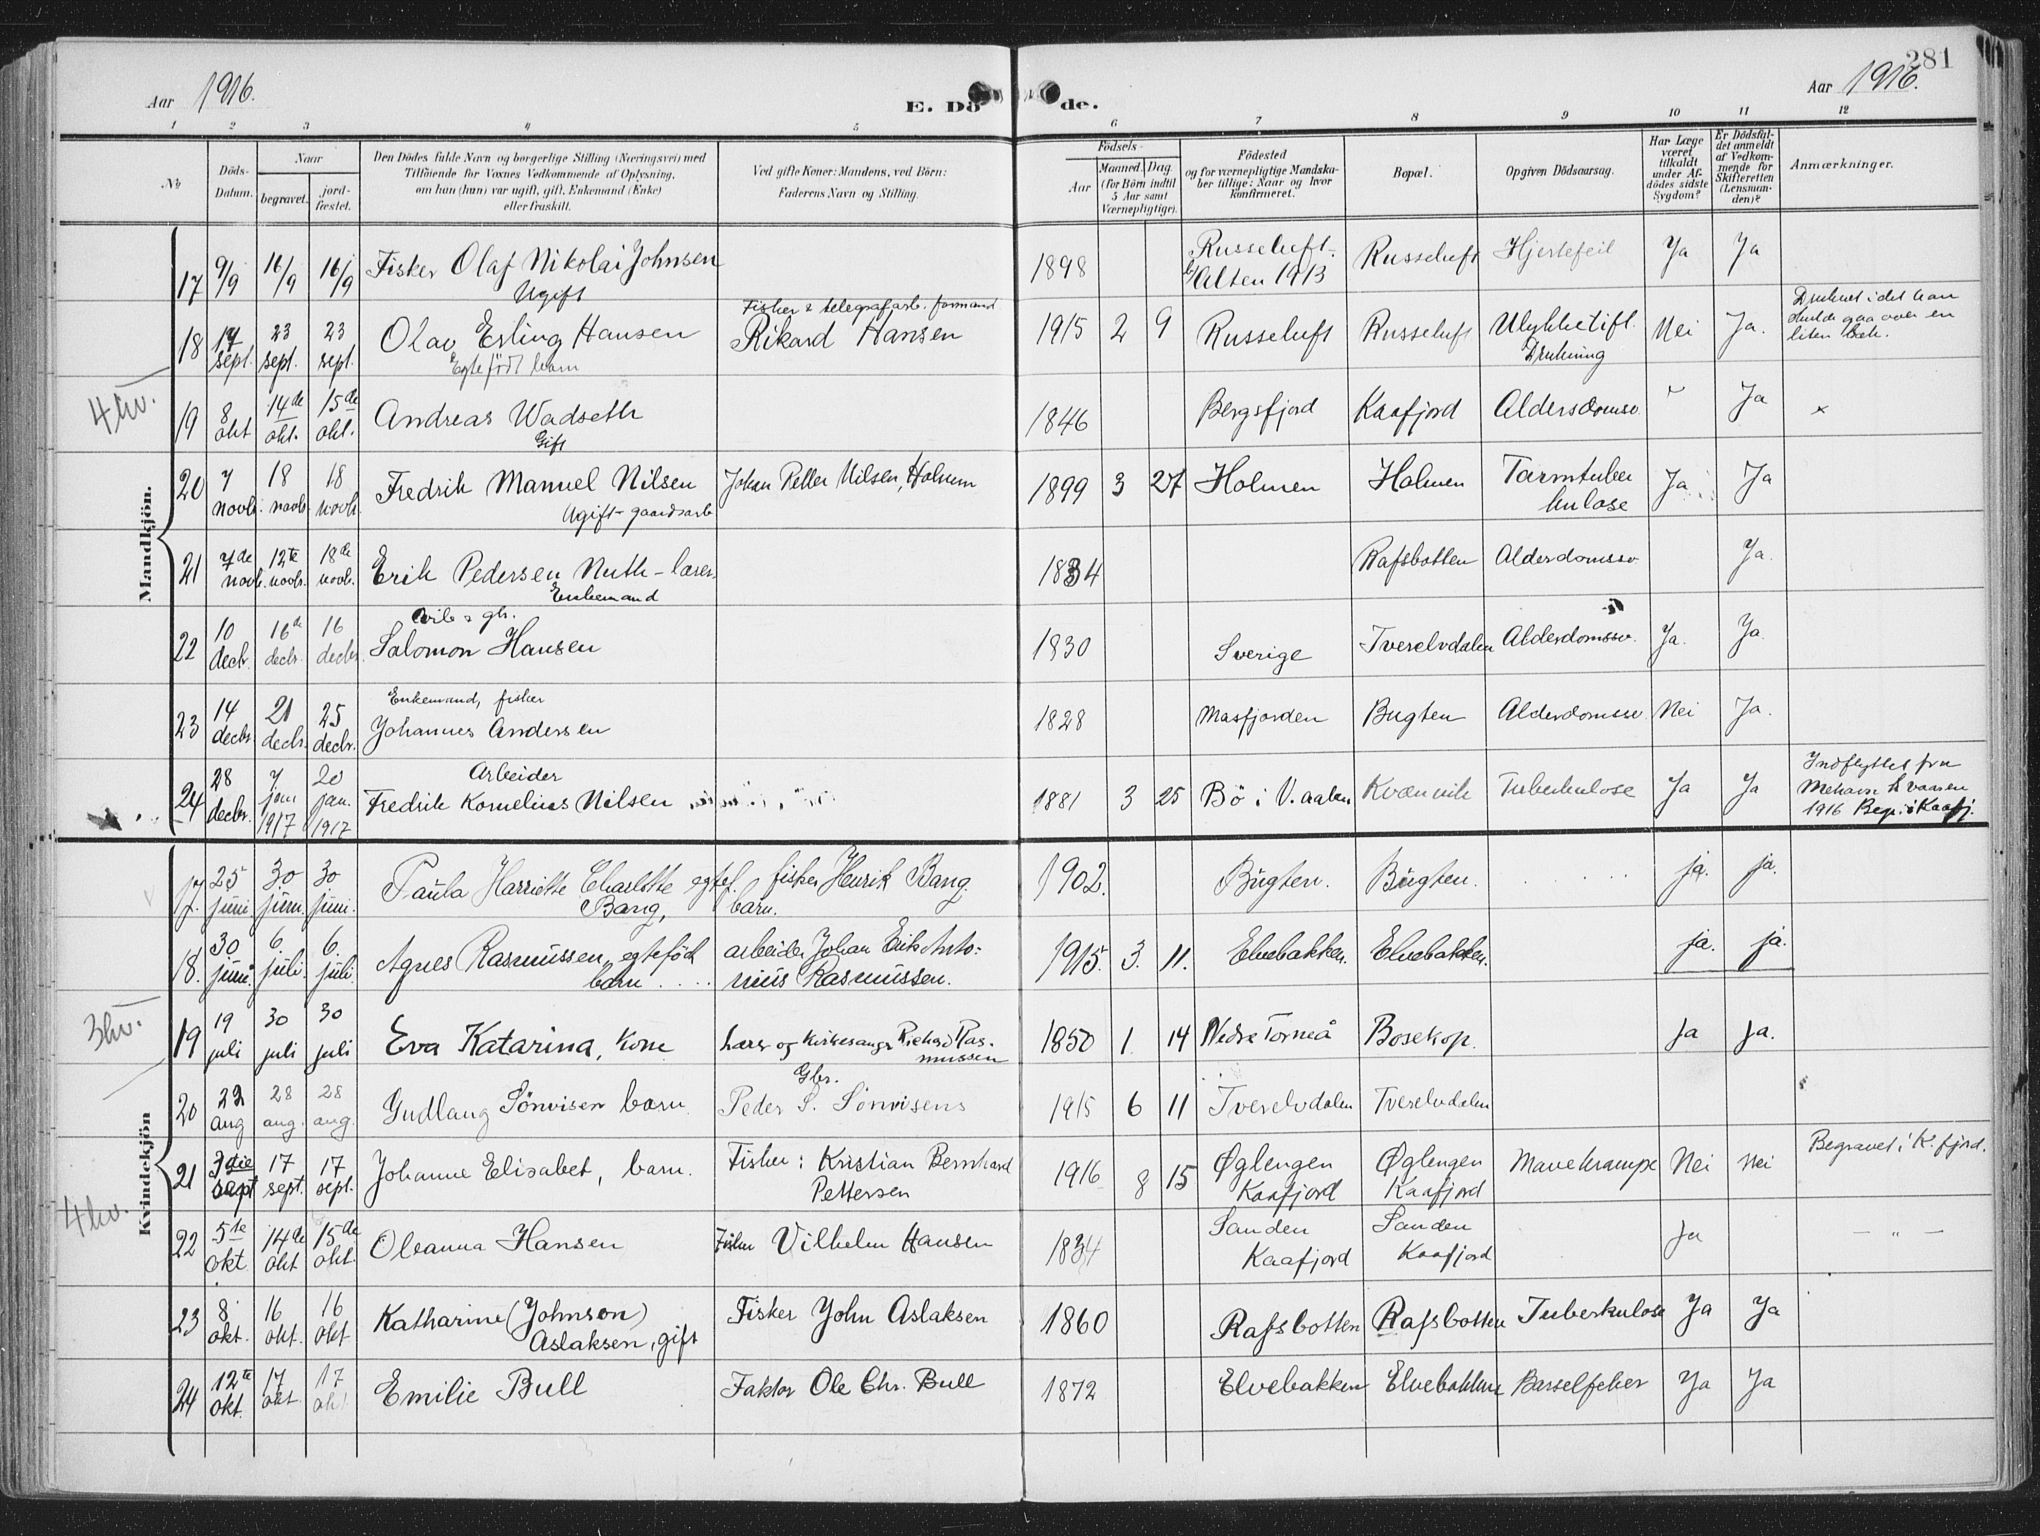 281
Aar 1916.
E. Dö de.
Aar 1916.
1 2 3 4 5 6 7 8 9 10 11 12
No
Döds-Datum.
Naar
begravet.
jord-fæstet.
Den Dödes fulde Navn og borgerlige Stilling (Næringsvei) med
Tilföiende for Voxnes Vedkommende af Oplysning,
om han (hun) var ugift, gift, Enkemand (Enke)
eller fraskilt.
Ved gifte Koner: Mandens, ved Börn:
Faderens Navn og Stilling.
Födsels-
Aar
Maaned. Dag.
(for Börn indtil
5 Aar samt
Værnepligtige).
Födested
og for værnepligtige Mandska-
ber tillige: Naar og hvor
konfirmeret.
Bopæl.
Opgiven Dödsaarsag.
Har Læge
været
tilkaldt
under Af-
dödes sidste
Sygdom?
Er Dödsfal-
det anmeldt
af Vedkom-
mende for
Skifteretten
(Lensman-
den)?
Anmærkninger.
Mandkjön.
17 9/9 16/9 16/9 Fisker Olaf Nikolai Johnsen 1898 Russeluft. Russeluft Hjertefeil Ja Ja
Ugift Alten 1913
Fisker & telegrafarb. formand
18 17 sept. 23 sept. 23 sept. Olav Erling Hansen Rikard Hansen 1915 2 9 Russeluft Russeluft Ulykketilf. Nei Ja.
Egtefödt barn Drukning
Druknet idet han
skulde gaa over en
liten bæk.
4 hv.
19 8 okt 14de okt. 15de okt. Andreas Wadseth 1846 Bergsfjord Kaafjord Aldersdomsv. Ja x
Gift
20 7 novb. 18 novb. 18 novb. Fredrik Manuel Nilsen Johan Petter Nilsen, Holmen 1899 3 27 Holmen Holmen Tarmtuber Ja Ja
Ugift - gaardsarb kulose
21 7de novb. 12te novb. 18de novb. Erik Pedersen Nuth - lærer. 1834 Rafsbotten Alderdomssv. Ja.
Enkemand
22 10 decb. 16de decb. 16 decbr. Salomon Hansen 1830 Sverige Tverelvdalen Alderdomssv. Ja. Ja.
Enkemand, fisker
23 14 decbr. 21 decb. 25 decbr. Johannes Andersen 1828 Masfjorden Bugten Alderdomssv. Nei Ja.
Arbeider
24 28 decbr. 7 jan 1917 20 jan. 1917 Fredrik Kornelius Nilsen 1881 3 25 Bö i V.aalen Kvænvik Tuberkulose Ja Ja
Indflyttet fra
Mehavn vaaren
1916 Begr. i Kaafj.
Kvindekjön
17. 25 juni 30 juni. 30 juni. Paula Harriette Charlotte egtef. fisker Henrik Bang 1902. Bugten. Bugten. ja. ja.
Bang, barn.
18. 30 juni. 6. juli. 6. juli. Agnes Rasmussen, egteföd arbeider Johan Erik Anto- 1915. 3. 11. Elvebakken. Elvebakken. ja. ja.
barn nius Rasmussen.
3 hv.
19 19 juli 30 juli 30 juli Eva Katarina, kone Lærer og kirkesanger Richard Ras- 1850 1. 14 Nedre Torneå Bosekop. Ja Ja.
mussen
Gbr.
20 22 aug 28 aug. 28 aug. Gudlaug Sönvisen barn Peder S. Sönvisens 1915 6 11 Tverelvdalen Tverelvdalen
21 sept 17 sept. 17 sept. Johanne Elisabet, barn. Fisker: Kristian Bernhard 1916 8 15 Øglengen Øglengen Mavekrampe Nei Nei Begravet i K.fjord.
Pettersen Kaafjord Kaafjord
4 hv.
22 5te okt. 14de okt 15de okt. Oleanna Hansen Fisker Vilhelm Hansen 1834 Sanden Sanden Ja — „ —
Kaafjord Kaafjord
23 8 okt. 16 okt. 16 okt Katharine (Johnson) Fisker John Aslaksen 1860 Rafsbotten Rafsbotten Tuberkulose Ja Ja
Aslaksen, gift
24 12te okt. 17 okt. 17 okt Emilie Bull Faktor Ole Chr. Bull 1872 Elvebakken Elvebakken Barselfeber Ja Ja